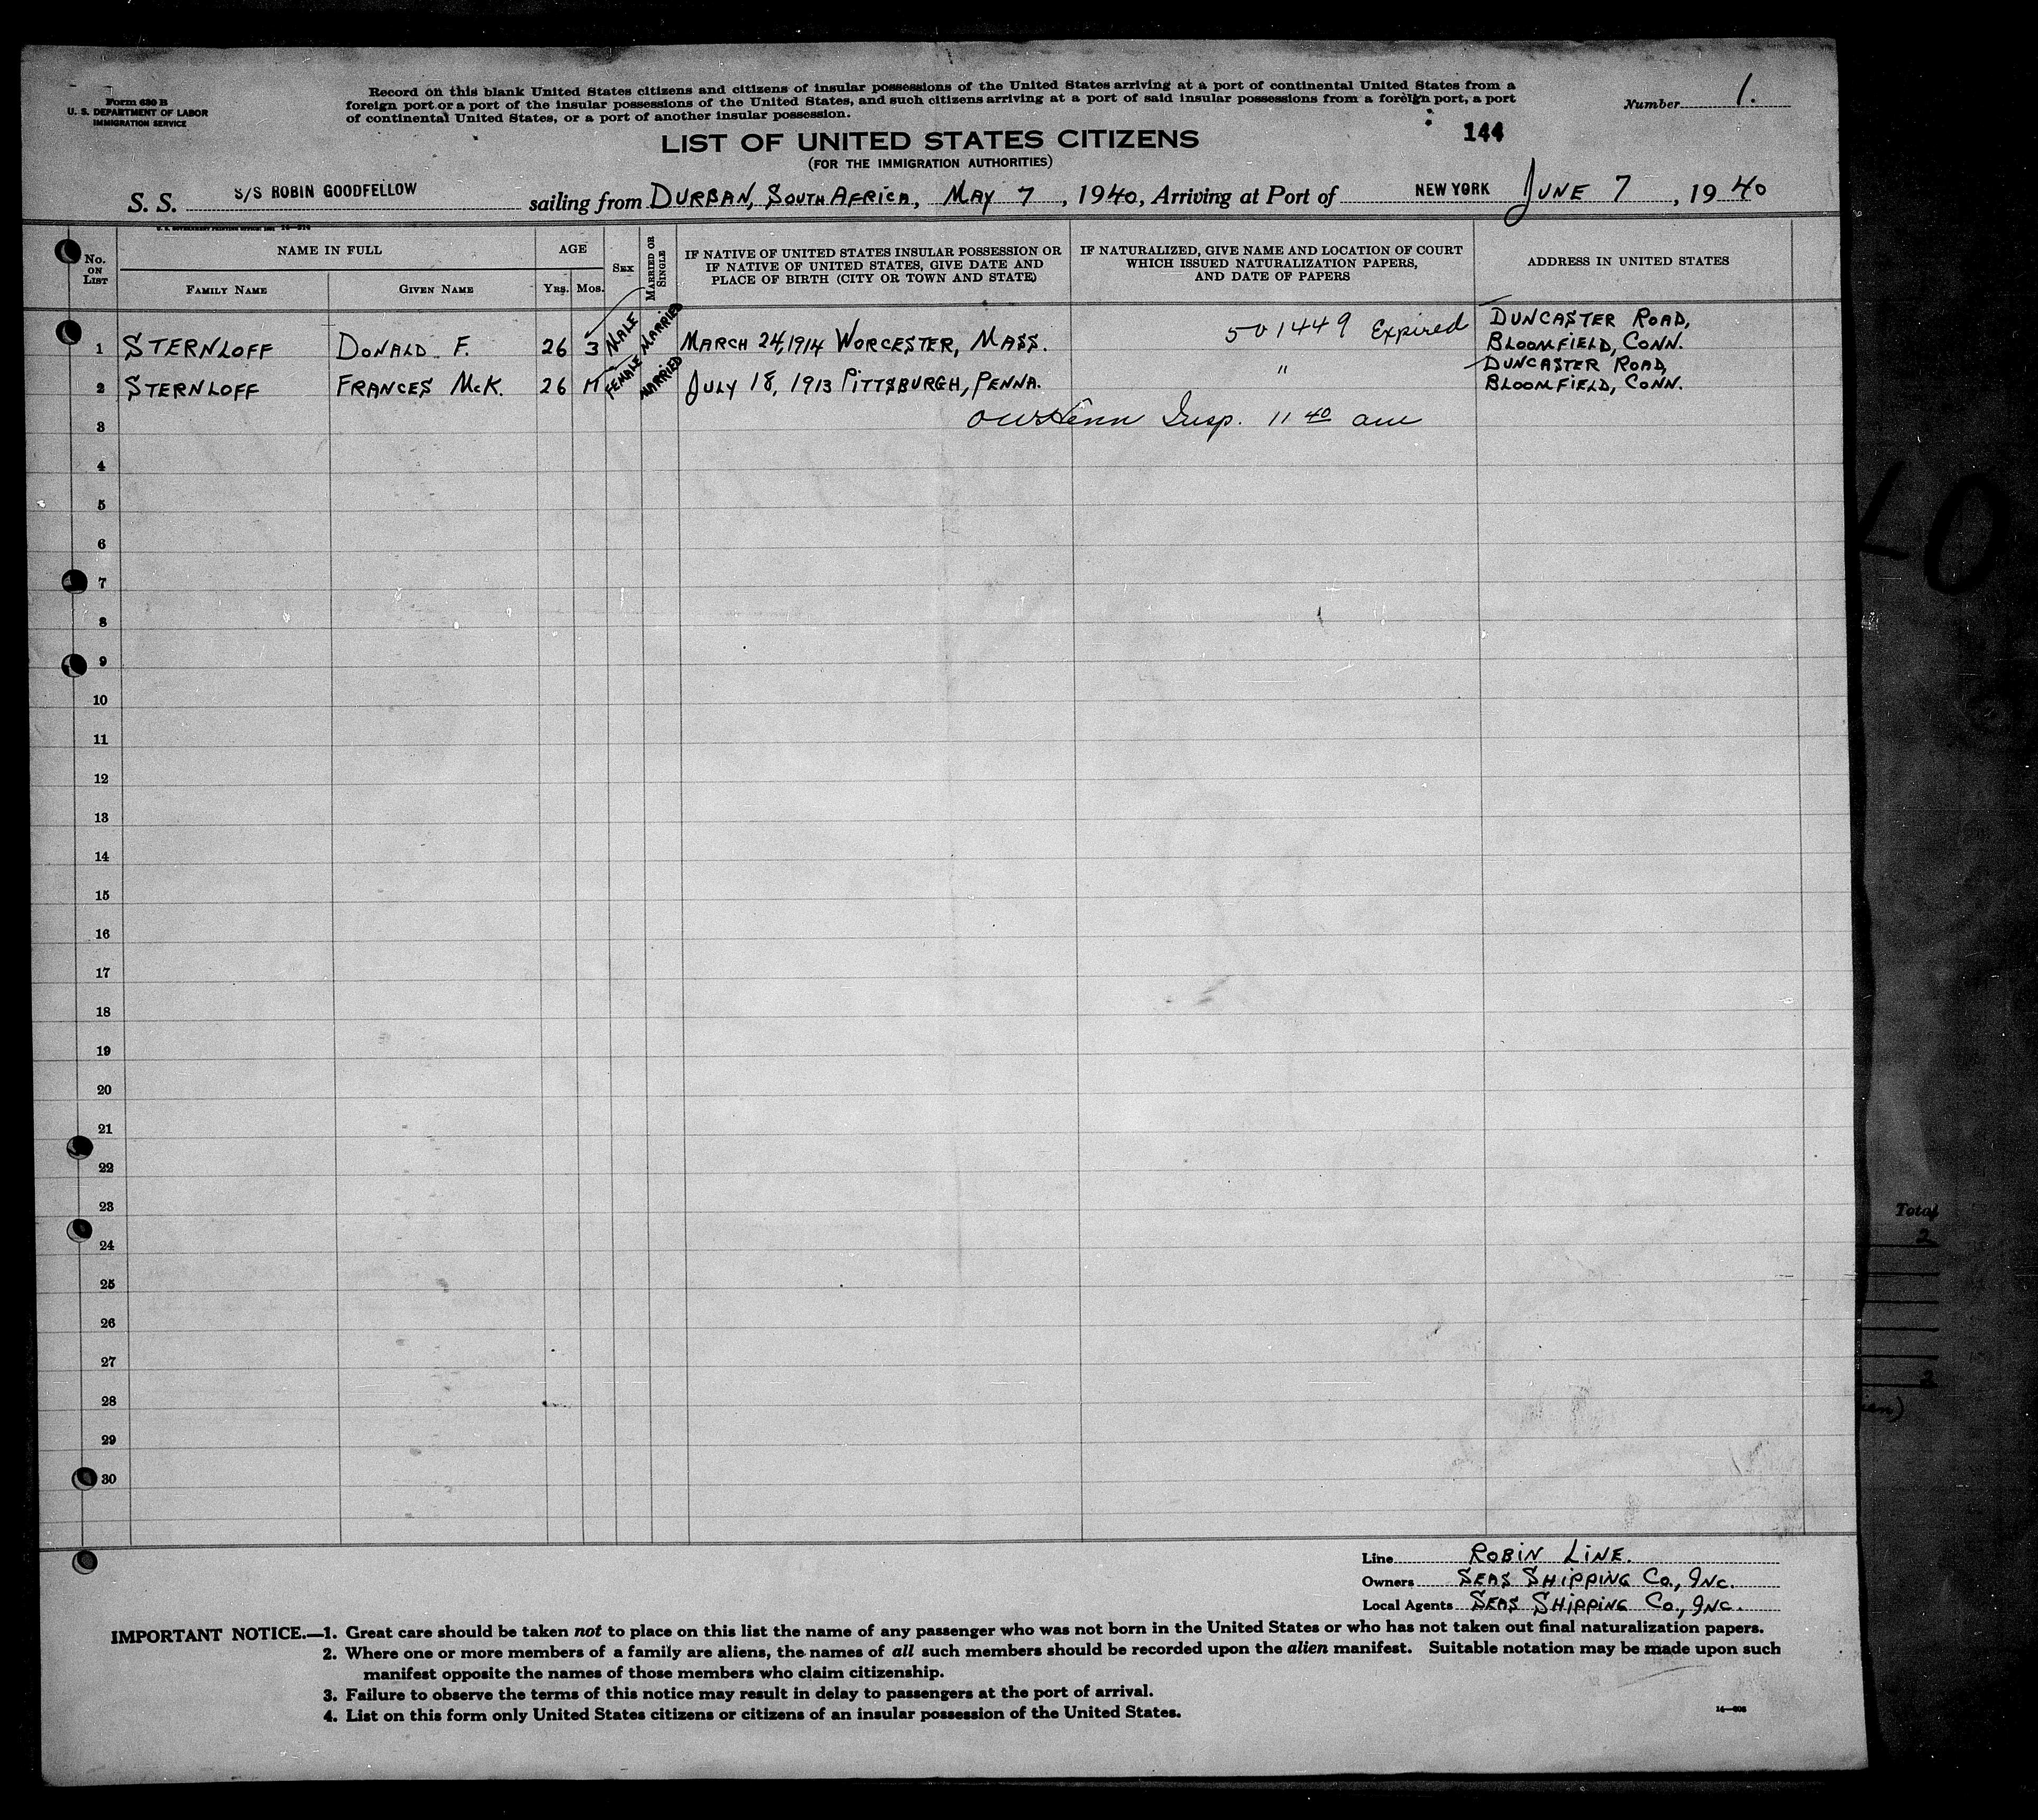 Form 630 B
U. S. DEPARTMENT OF LABOR
IMMIGRATION SERVICE
Record on this blank United States citizens and citizens of insular possessions of the United States arriving at a port of continental United States from a
foreign port or a port of the insular possessions of the United States, and such citizens arriving at a port of said insular possessions from a foreign port, a port
of continental United States, or a port of another insular possession.
Number 1.
LIST OF UNITED STATES CITIZENS
144
(FOR THE IMMIGRATION AUTHORITIES)
S. S. S/S ROBIN GOODFELLOW sailing from DURBAN, SOUTH AFRICA, MAY 7, 1940, Arriving at Port of NEW YORK JUNE 7, 1940
No. ON LIST
NAME IN FULL
FAMILY NAME
GIVEN NAME
AGE
YRS. MOS.
SEX
MARRIED OR SINGLE
IF NATIVE OF UNITED STATES INSULAR POSSESSION OR
IF NATIVE OF UNITED STATES, GIVE DATE AND
PLACE OF BIRTH (CITY OR TOWN AND STATE)
IF NATURALIZED, GIVE NAME AND LOCATION OF COURT
WHICH ISSUED NATURALIZATION PAPERS,
AND DATE OF PAPERS
ADDRESS IN UNITED STATES
1 STERNLOFF DONALD F. 26 3 MALE MARRIED MARCH 24, 1914 WORCESTER, MASS. 501449 Expired DUNCASTER ROAD,
BLOOMFIELD, CONN.
2 STERNLOFF FRANCES McK. 26 FEMALE MARRIED JULY 18, 1913 PITTSBURGH, PENNA. " DUNCASTER ROAD,
BLOOMFIELD, CONN.
3 Insp. 11 40 am
4
5
6
7
8
9
10
11
12
13
14
15
16
17
18
19
20
21
22
23
24
25
26
27
28
29
30
Total
2
2
Line ROBIN LINE.
Owners SEAS SHIPPING CO., INC.
Local Agents SEAS SHIPPING CO., INC.
IMPORTANT NOTICE.—1. Great care should be taken not to place on this list the name of any passenger who was not born in the United States or who has not taken out final naturalization papers.
2. Where one or more members of a family are aliens, the names of all such members should be recorded upon the alien manifest. Suitable notation may be made upon such
manifest opposite the names of those members who claim citizenship.
3. Failure to observe the terms of this notice may result in delay to passengers at the port of arrival.
4. List on this form only United States citizens or citizens of an insular possession of the United States.